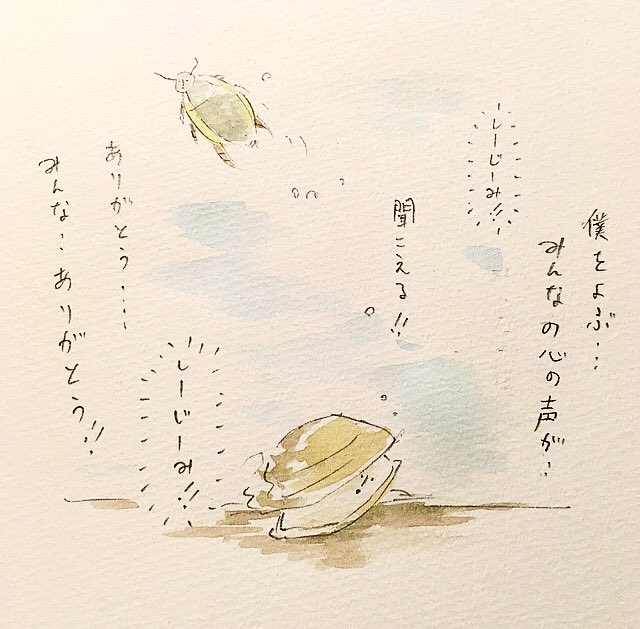 僕をよぶ…
みんなの心の声が…
しーじーみ!!
聞こえる!!
しーじーみ!!
ありがとう……
みんな…ありがとう!!